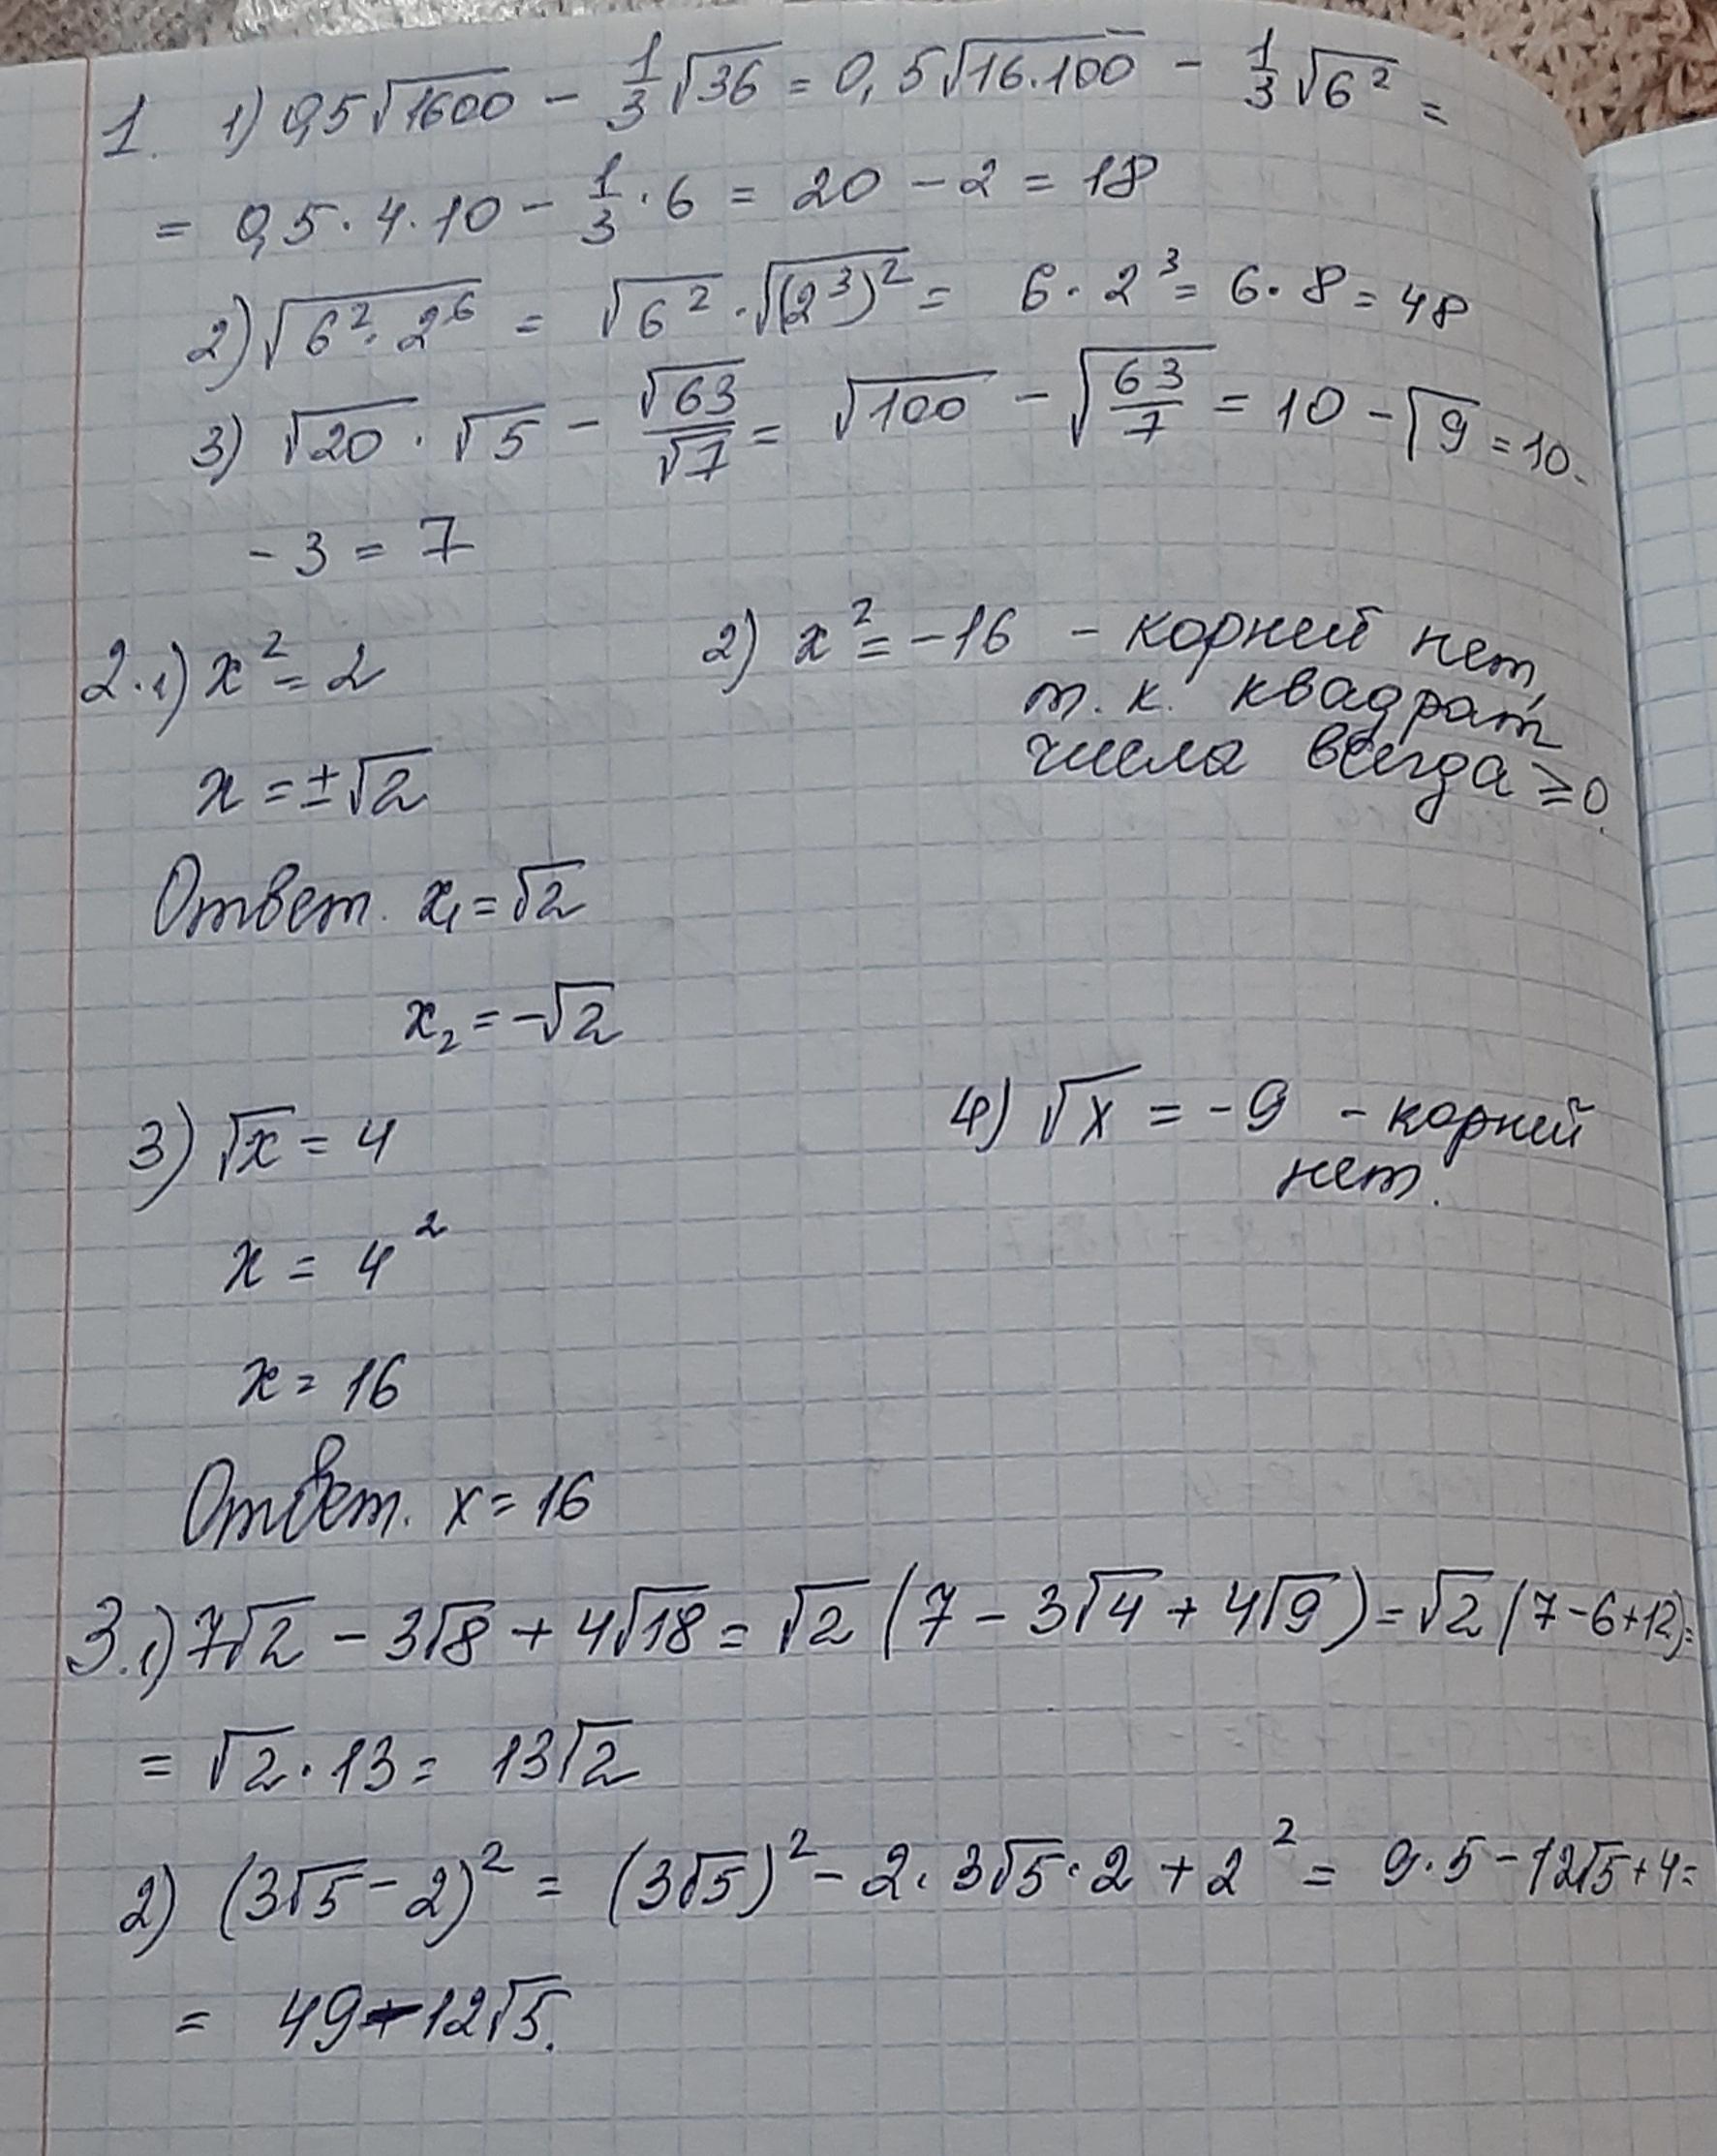 1. 1) 0,5√1600 - 1/3 √36 = 0,5√16·100 - 1/3 √6² =
= 0,5·4·10 - 1/3 ·6 = 20 - 2 = 18
2) √6²·2⁶ = √6² · √(2³)² = 6·2³ = 6·8 = 48
3) √20 · √5 - √63/√7 = √100 - √63/7 = 10 - √9 = 10-
- 3 = 7
2. 1) x² = 2
x = ±√2
Ответ. x₁ = √2
x₂ = -√2
2) x² = -16 - корней нет,
т. к. квадрат
числа всегда ≥ 0.
3) √x = 4
x = 4²
x = 16
Ответ. x = 16
4) √x = -9 - корней
нет.
3. 1) 7√2 - 3√8 + 4√18 = √2 (7 - 3√4 + 4√9) = √2 (7-6+12) =
= √2 · 13 = 13√2
2) (3√5 - 2)² = (3√5)² - 2·3√5·2 + 2² = 9·5 - 12√5 + 4 =
= 49 - 12√5.